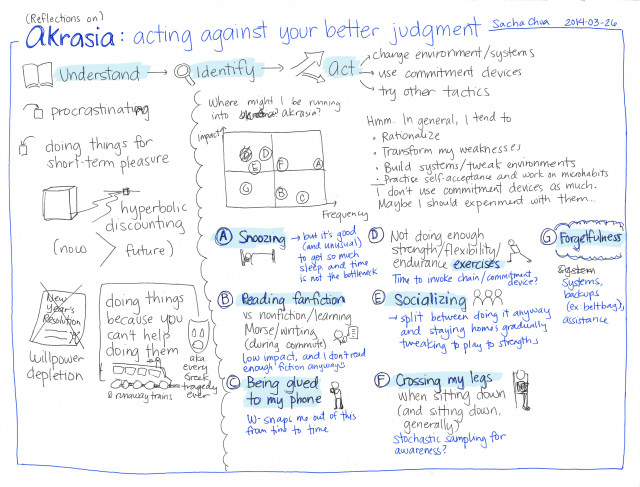 (Reflections on)
Akrasia: acting against your better judgment
Sacha Chua 2014-03-26
Understand
Identify
act
change environment/systems
use commitment devices
try other tactics
procrastination
doing things for
short-term pleasure
hyperbolic
discounting
(now > future)
New
Year's
Resolution
willpower
depletion
doing things
because you
can't help
doing them
& runaway trains
aka
every
Greek
tragedy
ever
Where might I be running
into akrasia?
Impact
D
E
F
A
G
B
C
Frequency
Hmm. In general, I tend to
• Rationalize
• Transform my weaknesses
• Build systems/tweak environments
• Practise self-acceptance and work on microhabits
I don't use commitment devices as much.
Maybe I should experiment with them...
A Snoozing
→ but it's good
(and unusual)
to get so much
sleep, and time
is not the bottleneck
B Reading fanfiction
vs nonfiction/learning
Morse/writing
(during commute)
Low impact, and I don't read
enough fiction anyways
C Being glued
to my phone
W- snaps me out of this
from time to time
D Not doing enough
strength/flexibility/
endurance exercises
Time to invoke chain/commitment
device?
E Socializing
→ split between doing it anyway
and staying home, gradually
tweaking to play to strengths
F Crossing my legs
when sitting down
(and sitting down,
generally)
Stochastic sampling for
awareness?
G Forgetfulness
System
Systems,
backups
(ex beltbag),
assistance